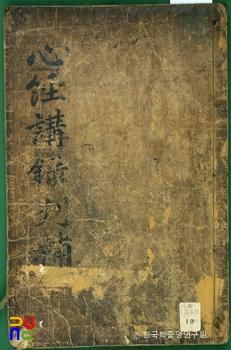 心經講錄刊補
10
© 한국학중앙연구원